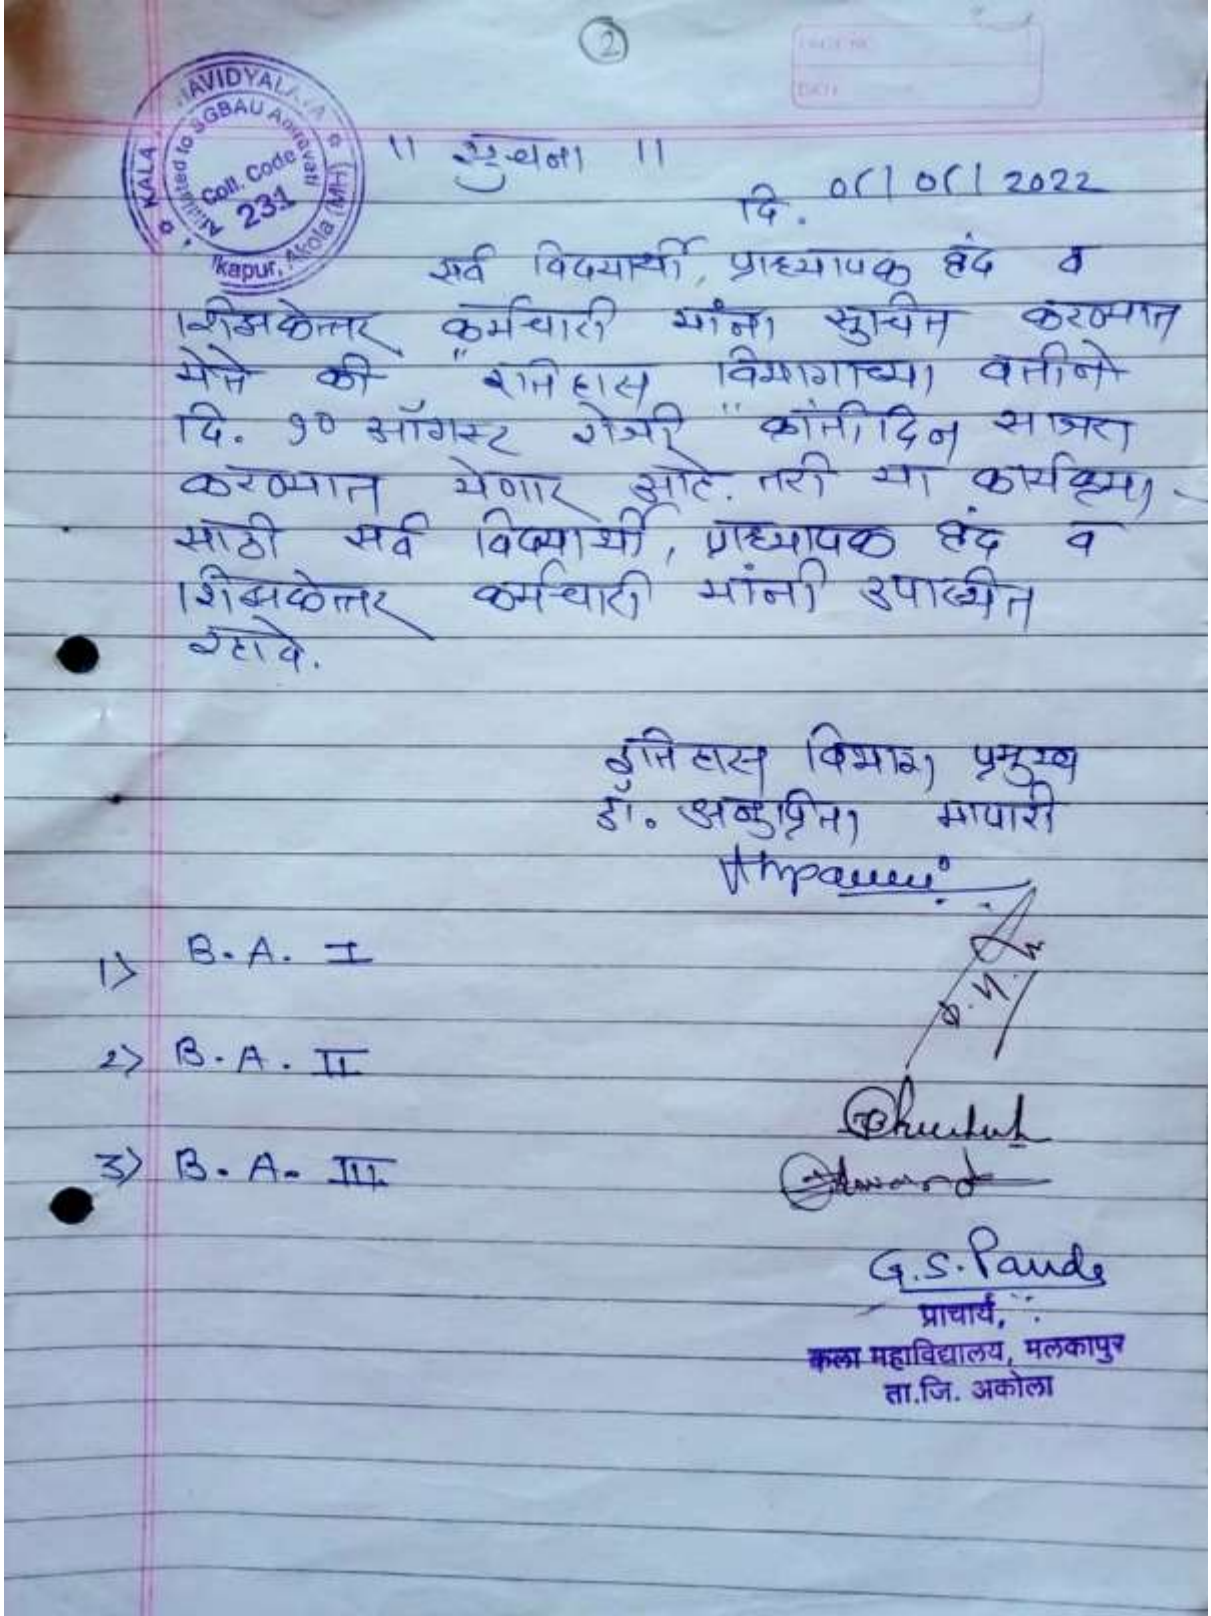 2
PAGE NO.
DATE
KALA MAHAVIDYALAYA
Affiliated to SGBAU Amravati
Coll. Code
231
Malkapur, Akola (MH)
॥ सुचना ॥
दि. 2022
सर्व विद्यार्थी, प्राध्यापक वृंद व
शिक्षकेत्तर कर्मचारी यांना सुचित करण्यात
येते की " इतिहास विभागाच्या वतीने
दि. १० ऑगस्ट रोजी " क्रांतीदिन साजरा
करण्यात येणार आहे. तरी या कार्यक्रमा
साठी सर्व विद्यार्थी, प्राध्यापक वृंद व
शिक्षकेत्तर कर्मचारी यांनी उपास्थीत
रहावे.
इतिहास विभाग प्रमुख
डॉ. अनुप्रिता मापारी
1) B. A. I
2) B. A. II
3) B. A. III
G.S. Pande
प्राचार्य,
कला महाविद्यालय, मलकापुर
ता.जि. अकोला